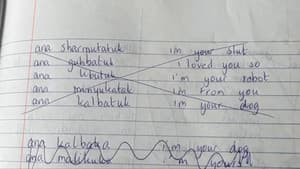 ana sharmutatuk i'm your slut
ana guhbatuk i loved you so
ana ubutuk i'm your robot
ana minyukatak i'm from you
ana kalbatuk i'm your dog
ana kalbatka i'm your dog
ana i'm yours